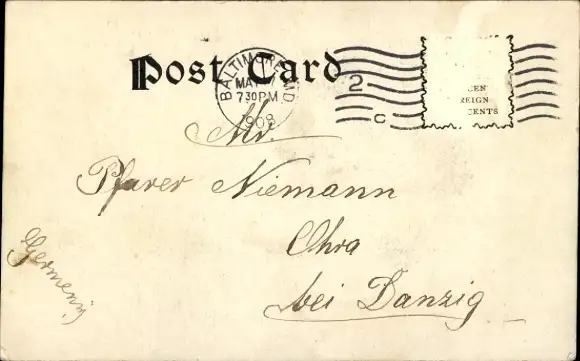 Post Card
BALTIMORE, MD.
MAY
7.30 PM
1908
2
C
CENT
REIGN
CENTS
Mr.
Pfarrer Niemann
Ohra
bei Danzig
Germany